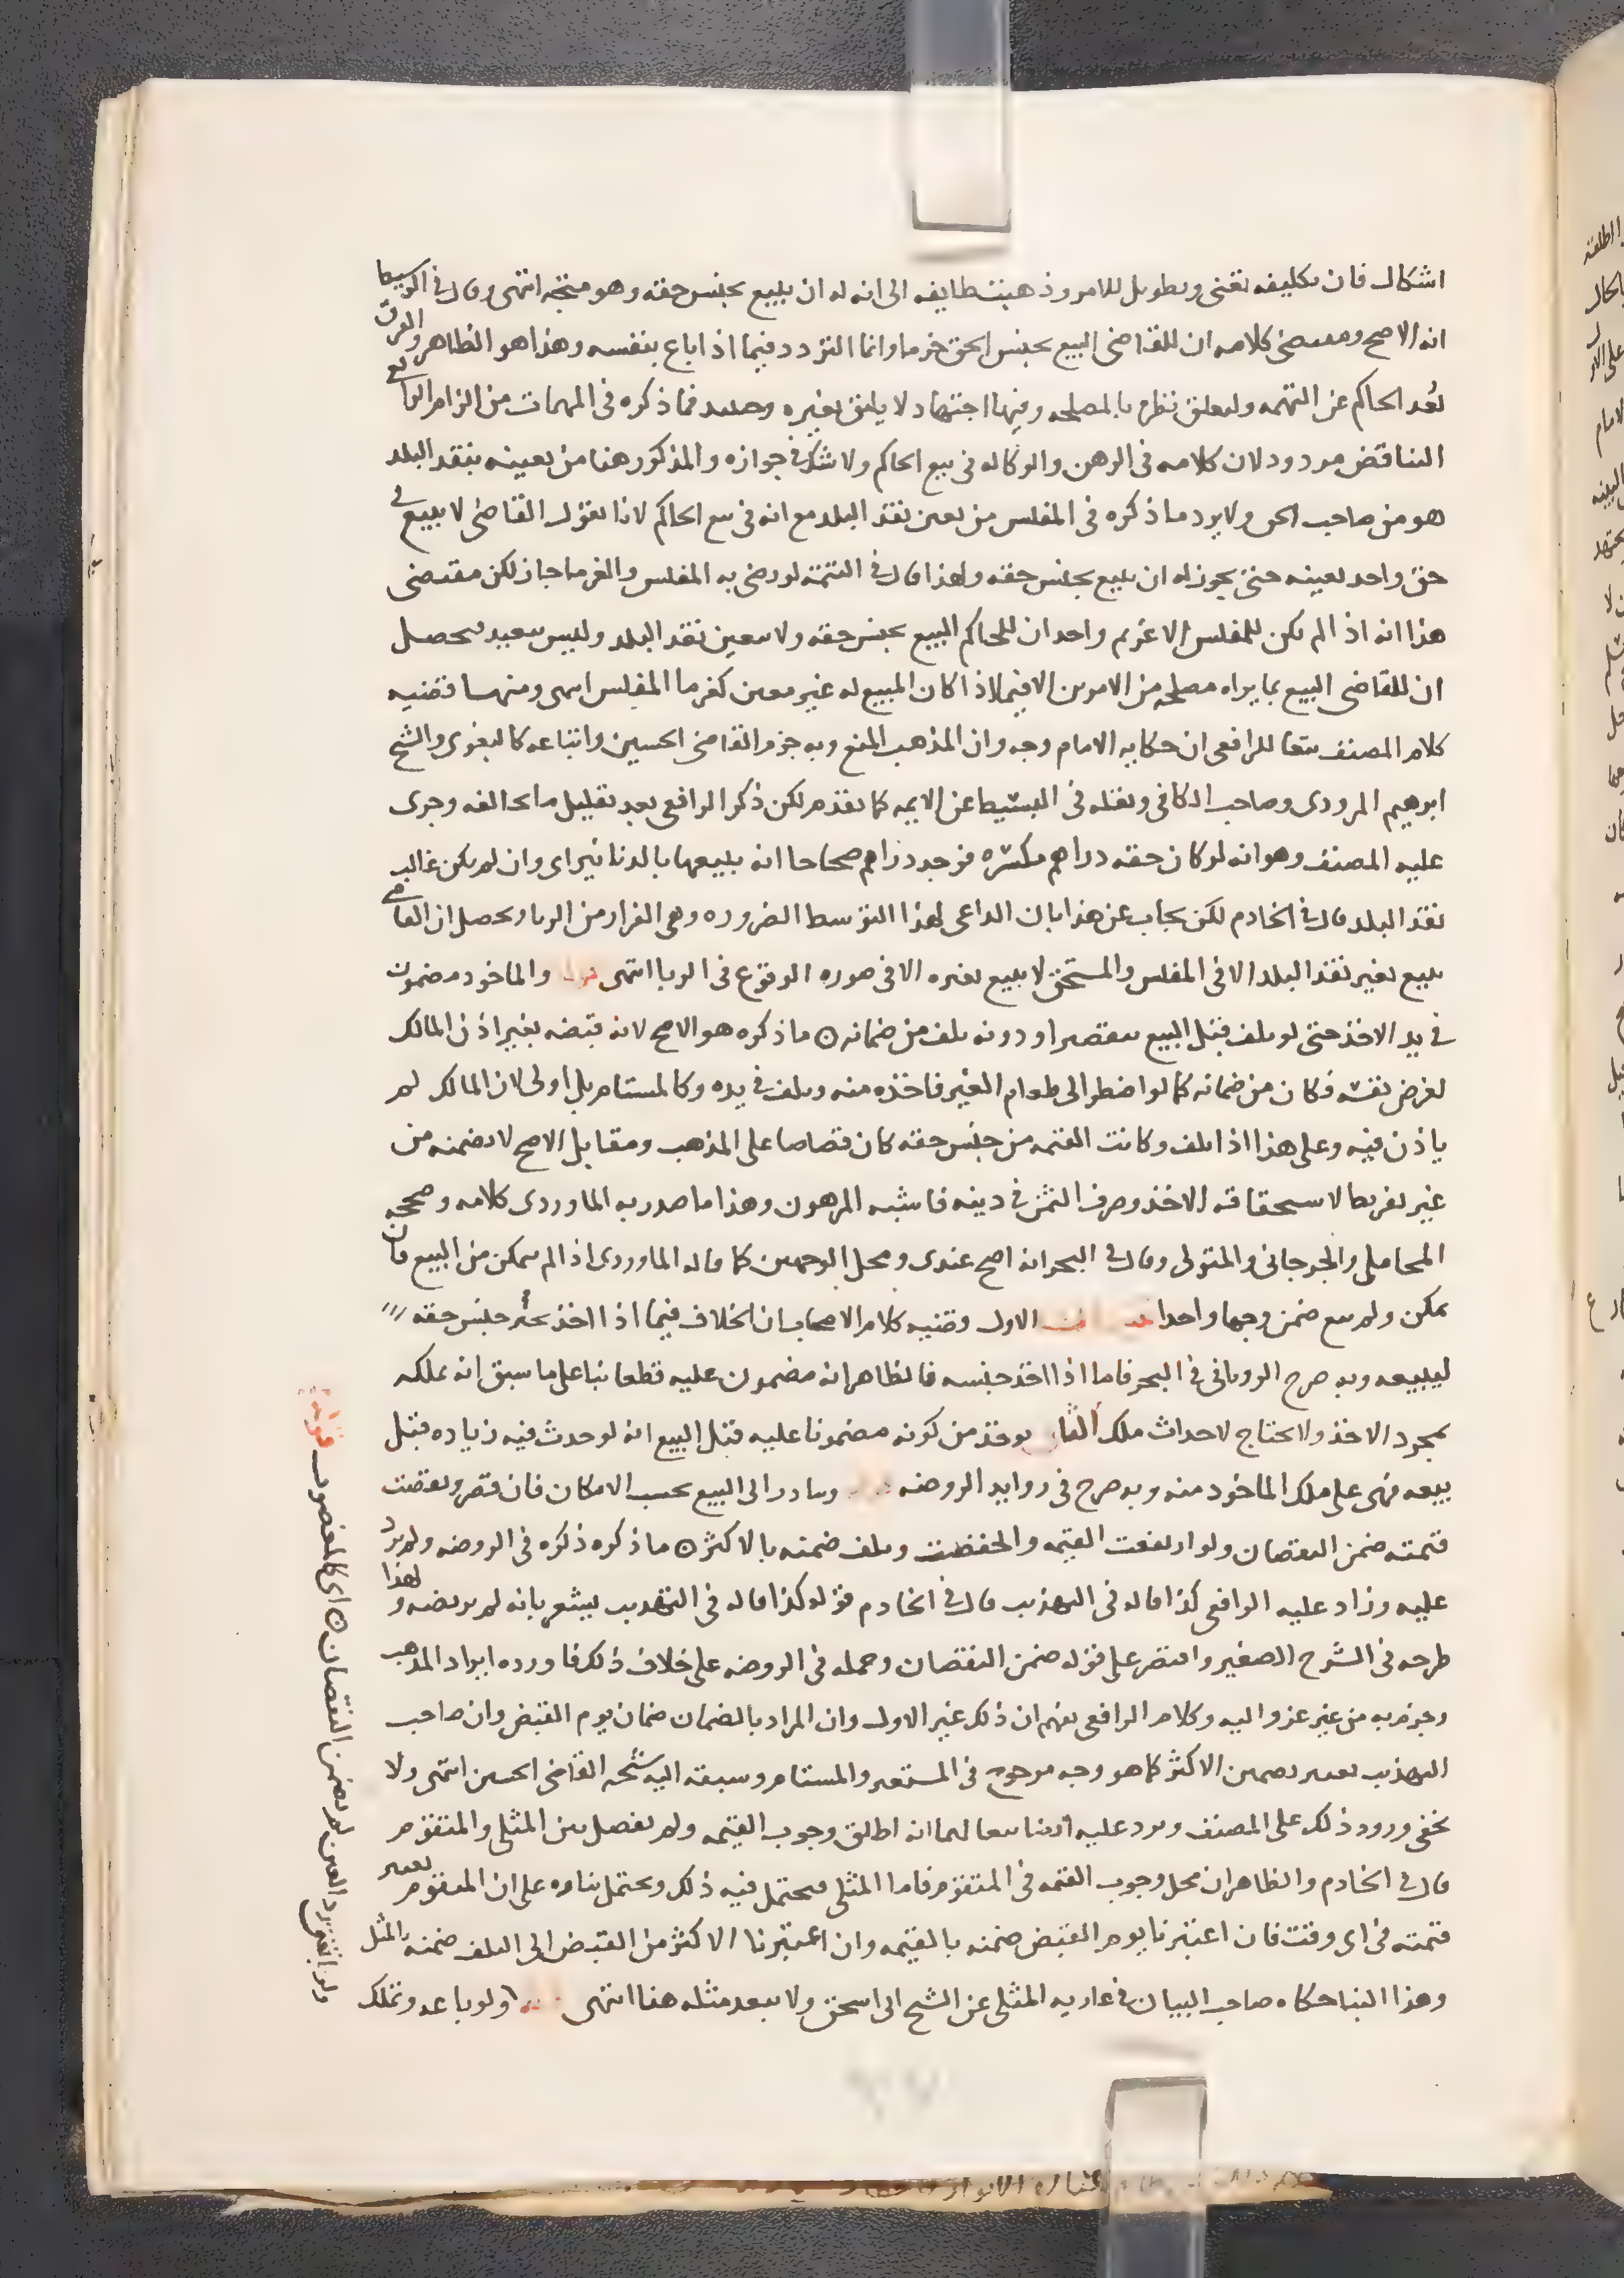 اشكال فان تكليفه تعنى وتطويل للامر وذهبت طايفه الى انه له ان يبيع بجنس حقه وهو متجه انتهى وقال في الوسيط
انه الاصح ومقتضى كلامه ان للقاضى البيع بجنس الحق جزما وانما التردد فيما اذا باع بنفسه وهذا هو الظاهر والفرق
بُعد الحاكم عن التهمه ولتعلق نظره بالمصلحه وفيها اجتهاد لا يليق بغيره وحينيد فما ذكره فى المهمات من الزام الرافعي
التناقض مردود لان كلامه فى الرهن والوكاله فى بيع الحاكم ولا شك في جوازه والمذكور هنا من تعينه بنقد البلد
هو من صاحب الحق ولا يرد ما ذكره فى المفلس من تعين نقد البلد مع انه فى بيع الحاكم لانا نقول القاضى لا يبيع في
حق واحد بعينه حتى يجوز له ان يبيع بجنس حقه ولهذا قال في التتمة لو رضى به المفلس والغرما جاز لكن مقتضى
هذا انه اذا لم يكن للمفلس الا غريم واحد ان للحاكم البيع بجنس حقه ولا يتعين نقد البلد وليس ببعيد فحصل
ان للقاضى البيع بما يراه مصلحه من الامرين الا فيما اذا كان المبيع له غير معين كغرما المفلس انتهى ومنها قضيه
كلام المصنف تبعا للرافعى ان حكايه الامام وجه وان المذهب المنع وبه جزم القاضى الحسين واتباعه كالبغوى والشيخ
ابرهيم المرودى وصاحب الكافى ونقله فى البسيط عن الايمه كما تقدم لكن ذكر الرافعى بعد بقليل ما يخالفه وجرى
عليه المصنف وهو انه لو كان حقه دراهم مكسره فوجد دراهم صحاحا انه يبيعها بالدنانير اى وان لم يكن غالب
نقد البلد قال في الخادم لكن يجاب عن هذا بان الداعى لهذا التوسط الضروره وهى الفرار من الربا وحصل ان القاضي
يبيع بغير نقد البلد الا فى المفلس والمستحق لا يبيع بغيره الا فى صوره الوقوع فى الربا انتهى والماخوذ مضمون
في يد الاخذ حتى لو تلف قبل البيع بتقصير او دونه تلف من ضمانه ۞ ما ذكره هو الاصح لانه قبضه بغير اذن المالك
لغرض نفسه فكان من ضمانه كما لو اضطر الى طعام الغير فاخذه منه وتلف في يده وكالمستام بل اولى لان المالك لم
ياذن فيه وعلى هذا اذا تلف وكانت القيمه من جنس حقه كان قصاصا على المذهب ومقابل الاصح لا يضمنه من
غير تفريط لاستحقاقه الاخذ وصرف الثمن في دينه فاشبه المرهون وهذا ما صدر به الماوردى كلامه وصححه
المحاملى والجرجانى والمتولى وقال في البحر انه اصح عندى ومحل الوجهين كما قاله الماوردى اذا لم يتمكن من البيع فان
تمكن ولم يبع ضمن وجها واحدا الاول وقضيه كلام الاصحاب ان الخلاف فيما اذا اخذ غير جنس حقه
ليبيعه وبه صرح الرويانى في البحر فاما اذا اخذ جنسه فالظاهر انه مضمون عليه قطعا بنا على ما سبق انه يملكه
بمجرد الاخذ ولا يحتاج لاحداث ملك الثانى يوخذ من كونه مضمونا عليه قبل البيع انه لو حدث فيه زياده قبل
بيعه فهى على ملك الماخوذ منه وبه صرح فى زوايد الروضه ويبادر الى البيع بحسب الامكان فان قصر ونقصت
قيمته ضمن النقصان ولو ارتفعت القيمه وانخفضت وتلف ضمنه بالاكثر ۞ ما ذكره ذكره فى الروضه ولم يرد
عليه وزاد عليه الرافعى كذا قاله فى التهذيب قال في الخادم قوله كذا قاله فى التهذيب يشعر بانه لم يرتضه ولهذا
طرحه فى الشرح الصغير واقتصر على قوله ضمن النقصان وحمله فى الروضه على خلاف ذلك فاورده ايراد المذهب
وجزم به من غير عزو اليه وكلام الرافعى يفهم ان ذلك غير الاول وان المراد بالضمان ضمان يوم القبض وان صاحب
التهذيب يعتبر تضمين الاكثر كما هو وجه مرجوح فى المستعير والمستام وسبقه اليه شيخه القاضى الحسين انتهى ولا
يخفى ورود ذلك على المصنف ويرد عليه ايضا تبعا لهما انه اطلق وجوب القيمه ولم يفصل بين المثلى والمتقوم
قال في الخادم والظاهر ان محل وجوب القيمه فى المتقوم فاما المثلى فيحتمل فيه ذلك ويحتمل بناوه على ان المتقوم يعتبر
قيمته فى اى وقت فان اعتبرنا يوم القبض ضمنه بالقيمه وان اعتبرنا الاكثر من القبض الى التلف ضمنه بالمثل
وهذا البنا حكاه صاحب البيان في عاريه المثلى عن الشيخ ابى اسحق ولا يبعد مثله هنا انتهى ولو باعه وتملك
قوله
ضمن النقصان ۞ اى كالمغصوب